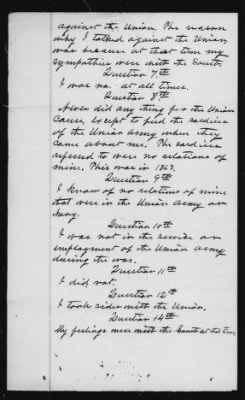 against the Union. The reason
why I talked against the Union
was because at that time my
sympathies were with the South.
Question 7th
I was no. at all times.
Question 8th
Never did any thing for the Union
Cause Except to feed the soldiers
of the Union army when they
came about me. The soldiers
referred to were no relations of
mine. This was in 1863.
Question 9th
I know of no relations of mine
that were in the Union Army or
Navy.
Question 10th
I was not in the service or
employment of the Union Army
during the war.
Question 11th
I did not.
Question 12th
I took sides with the Union.
Question 14th
My feelings were with the South at 1st time